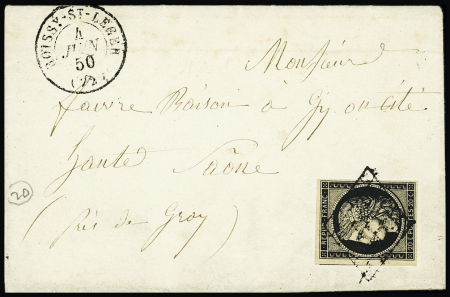 BOISSY-ST-LEGER
4
JUIN
50
(72)
Monsieur
favre Raison à Gy
haute Saône
(près de Gray)
20
REPUB. FRANC.
20 c. POSTES 20 c.